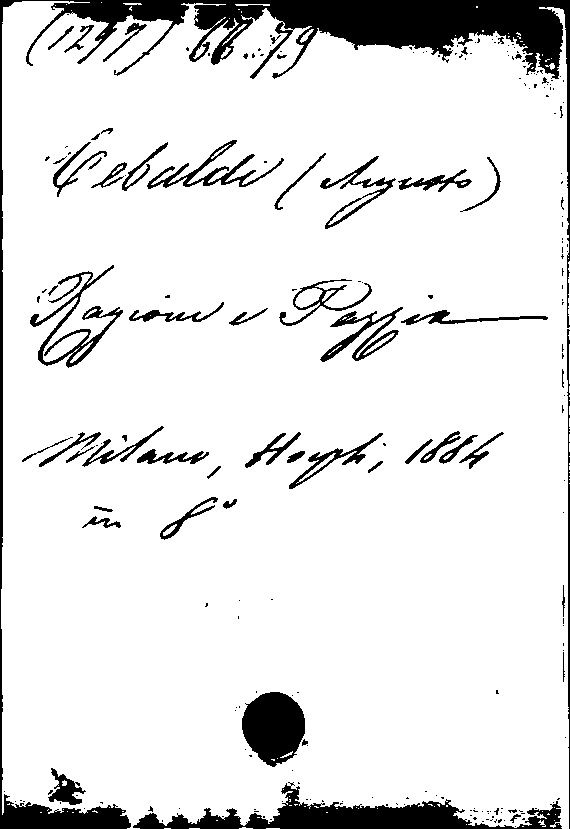 (1297) 66..79
Tebaldi (Augusto)
Ragione e Pazzia
Milano, Hoepli, 1884
in 8°